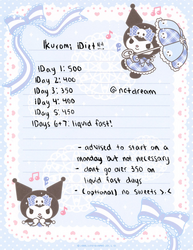 Kuromi Diet
Day 1: 500
Day 2: 400
Day 3: 350
Day 4: 400
Day 5: 450
Days 6+7: liquid fast!
- advised to start on a
monday but not necessary
- dont go over 350 on
liquid fast days
- (optional) no sweets >.<